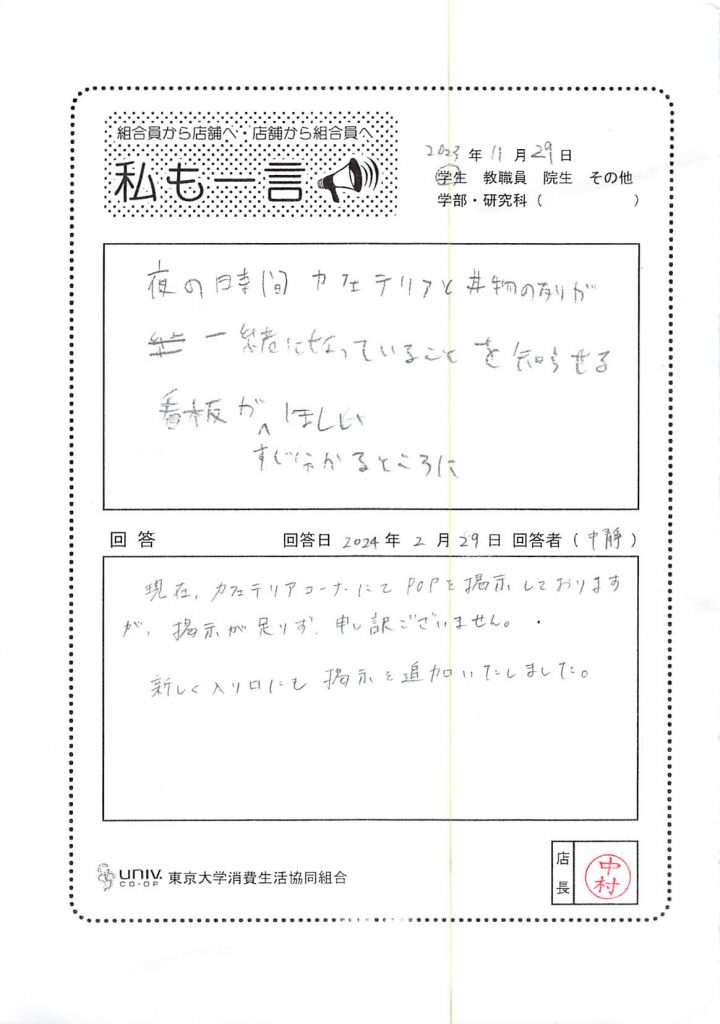 組合員から店舗へ・店舗から組合員へ
私も一言
2023年 11月29日
学生 教職員 院生 その他
学部・研究科（ ）
夜の時間 カフェテリアと丼物の列が
一緒になっていることを知らせる
看板が ほしい
すぐ分かるところに
回答 回答日 2024年 2月 29日 回答者（中静）
現在、カフェテリアコーナーにて POPを掲示しております
が、掲示が足りず、申し訳ございません。
新しく入り口にも 掲示を追加いたしました。
UNIV. CO-OP 東京大学消費生活協同組合
店長 中村